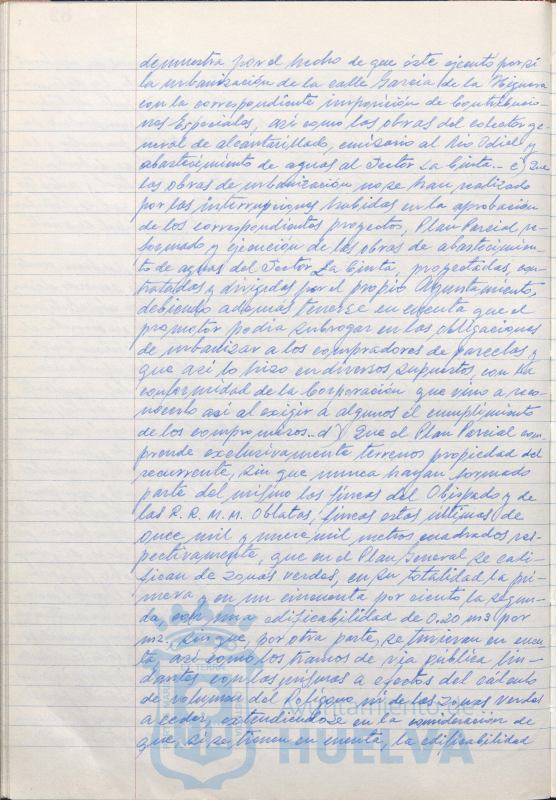 demuestra por el hecho de que éste ejecutó por sí
la urbanización de la calle García de la Higuera
con la correspondiente imposición de Contribucio-
nes Especiales, así como las obras del colector ge-
neral de alcantarillado, emisario al Río Odiel y
abastecimiento de aguas al Sector La Cinta.- c) Que
las obras de urbanización no se han realizado
por las interrupciones habidas en la aprobación
de los correspondientes proyectos, Plan Parcial re-
formado y ejecución de las obras de abastecimien-
to de aguas del Sector La Cinta, proyectadas, con-
tratadas y dirigidas por el propio Ayuntamiento,
debiendo además tenerse en cuenta que el
promotor podía subrogar en las obligaciones
de urbanizar a los compradores de parcelas y
que así lo hizo en diversos supuestos, con la
conformidad de la Corporación que vino a reco-
nocerlo así al exigir a algunos el cumplimiento
de los compromisos.- d) Que el Plan Parcial com-
prende exclusivamente terrenos propiedad del
recurrente, sin que nunca hayan formado
parte del mismo las fincas del Obispado y de
las R.R. M.M. Oblatas, fincas estas últimas de
once mil y nueve mil metros cuadrados res-
pectivamente, que en el Plan General se cali-
fican de zonas verdes, en su totalidad la pri-
mera y en un cincuenta por ciento la segun-
da con una edificabilidad de 0,20 m3 por
m2. sin que, por otra parte, se tuvieran en cuen-
ta, así como los tramos de vía pública lin-
dantes con las mismas a efectos del cálculo
de volumen del Polígono ni de las zonas verdes
a ceder, extendiéndose en la consideración de
que, si se tienen en cuenta, la edificabilidad
Ayuntamiento de
HUELVA